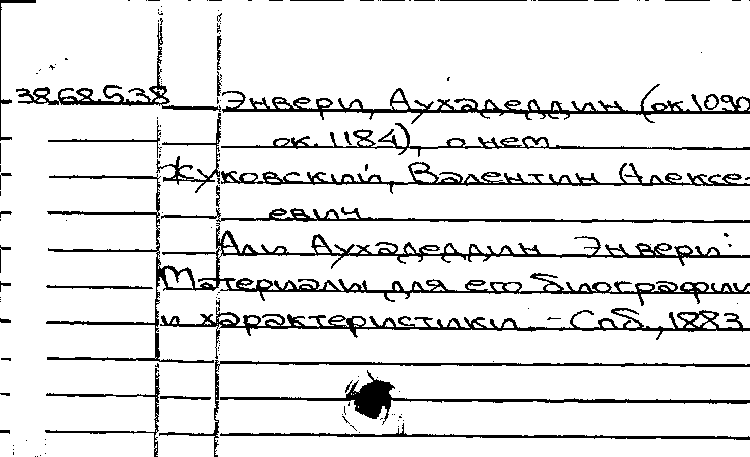 38.68.5.38 Энвери, Аухадеддин (ок. 1090
ок. 1184), о нем
Жуковский, Валентин Алексе-
евич
Али Аухадеддин Энвери:
Материалы для его биографии
и характеристики. - Спб., 1883